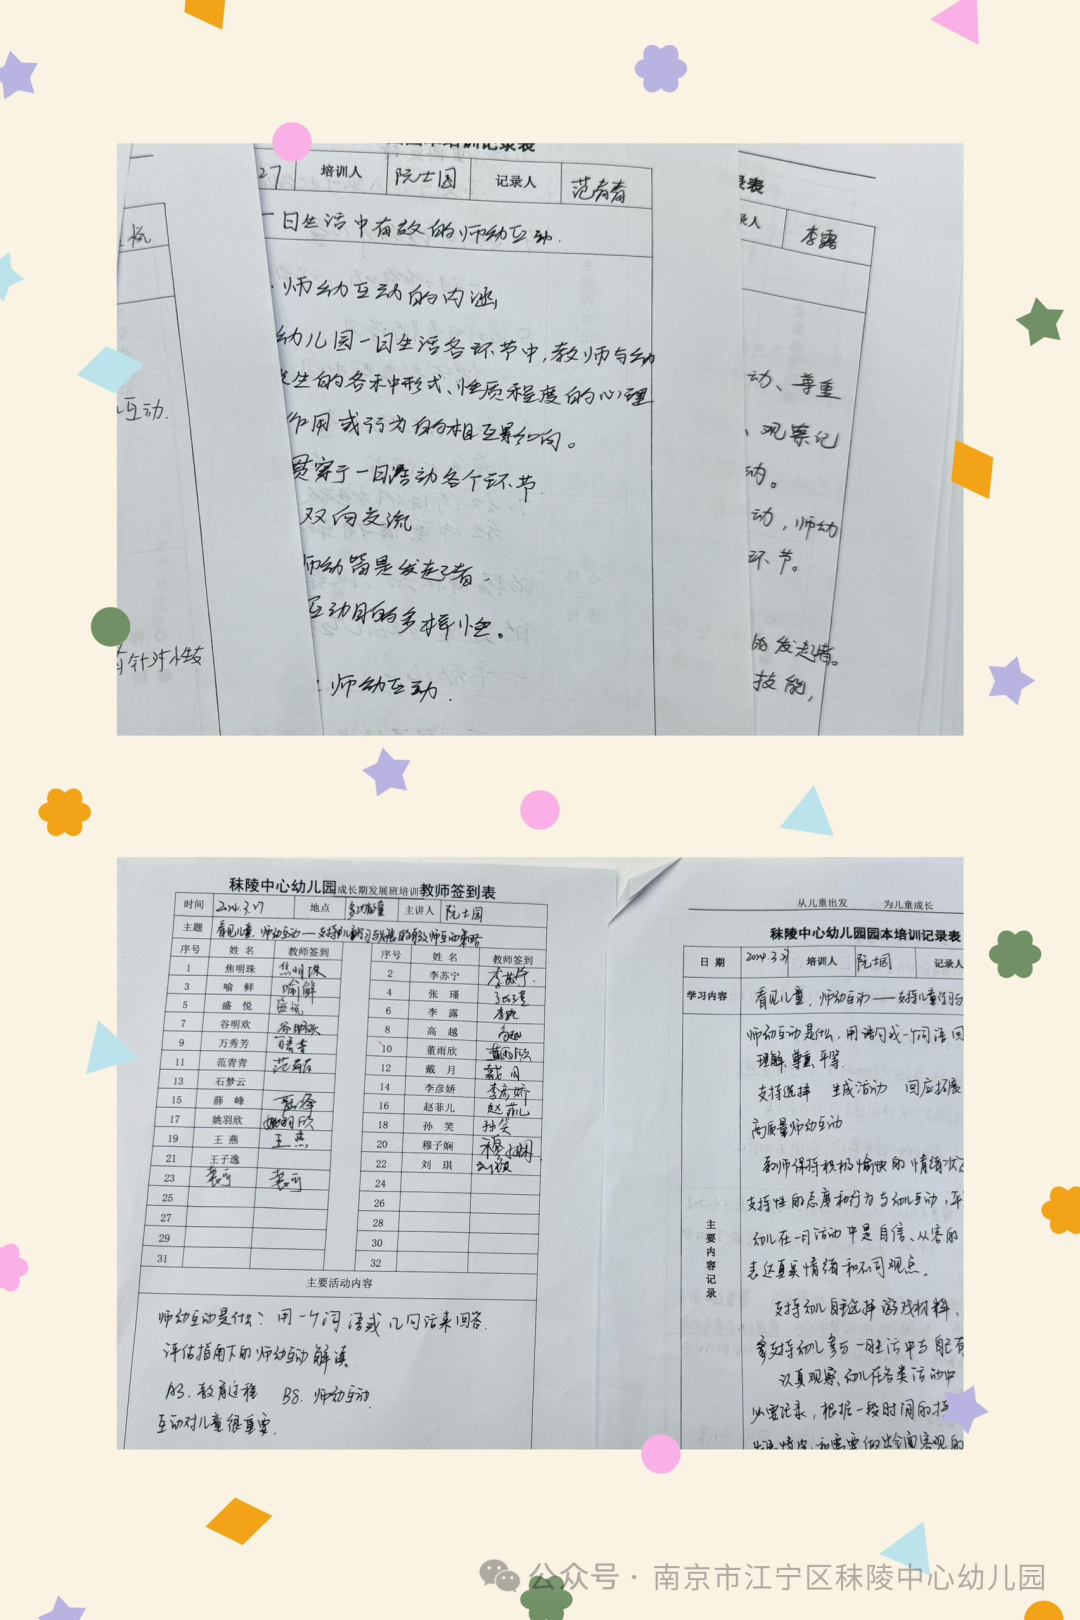 培训记录表
27 培训人 阮士园 记录人 范青青
一日生活中有效的师幼互动.
师幼互动的内涵
幼儿园一日生活各环节中,教师与幼
生的各种形式、性质和程度的心理
作用或行为的相互影响。
贯穿于一日活动各个环节
双向交流
师幼皆是发起者.
互动目的多样性。
师幼互动.
互动.
有针对性
录表
录人 李露
动、尊重
、观察记
动。
动,师幼
环节。
的发起者。
技能,
秣陵中心幼儿园成长期发展班培训教师签到表
时间 2024.3.27 地点 主讲人 阮士园
主题 看见儿童,师幼互动——支持儿童学习与发展的
序号 姓名 教师签到 序号 姓名 教师签到
1 焦明珠 焦明珠 2 李苏宁 李苏宁
3 喻鲜 喻鲜 4 张瑾 张瑾
5 盛悦 盛悦 6 李露 李露
7 谷明欢 谷明欢 8 高越 高越
9 万秀芳 10 董雨欣 董雨欣
11 范青青 范青青 12 戴月 戴月
13 石梦云 14 李彦娇 李彦娇
15 薛峰 16 赵菲儿 赵菲儿
17 姚羽欣 姚羽欣 18 孙笑 孙笑
19 王燕 王燕 20 穆子娴 穆子娴
21 王子逸 22 刘琪 刘琪
23 24
25 26
27 28
29 30
31 32
主要活动内容
师幼互动是什么?用一个词语或几句话来回答.
评估指南下的师幼互动解读.
A3.教育过程 B8.师幼互动.
互动对儿童很重要.
从儿童出发 为儿童成长
秣陵中心幼儿园园本培训记录表
日期 2024.3.27 培训人 阮士园 记录人
学习内容 看见儿童,师幼互动——支持儿童学习与
主要内容记录
师幼互动是什么,用语句或一个词语回
理解、尊重、平等.
支持选择 生成活动 回应拓展
高质量师幼互动
教师保持积极愉快的情绪状态
支持性的态度和行为与幼儿互动,平
幼儿在一日活动中是自信、从容的
表达真实情绪和不同观点.
支持幼儿自主选择游戏材料、
支持幼儿参与一日生活中与自己有
认真观察幼儿在各类活动中
必要记录,根据一段时间的
公众号·南京市江宁区秣陵中心幼儿园